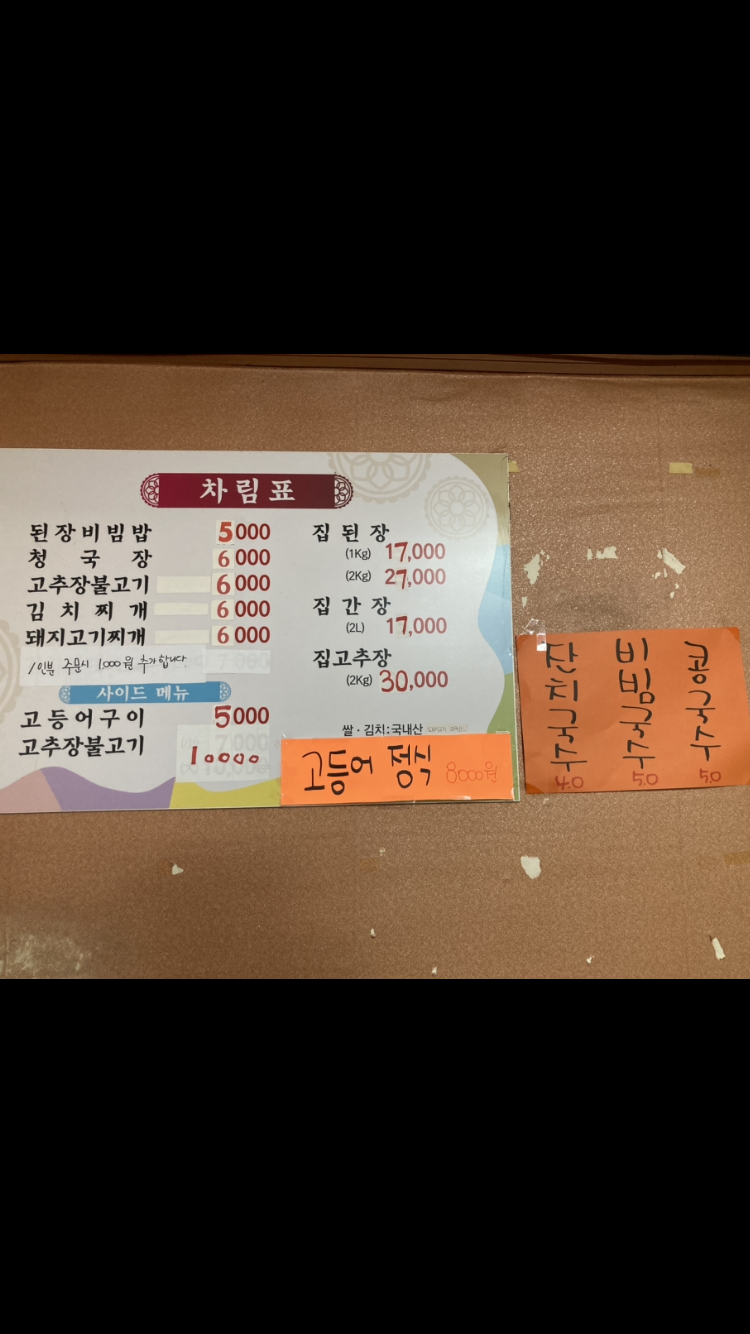 차림표
된장비빔밥 5000
청국장 6000
고추장불고기 6000
김치찌개 6000
돼지고기찌개 6000
1인분 주문시 1,000원 추가합니다
사이드 메뉴
고등어구이 5000
고추장불고기 10000
집된장
(1Kg) 17,000
(2Kg) 27,000
집간장
(2L) 17,000
집고추장
(2Kg) 30,000
쌀·김치:국내산
고등어 정식 8000원
잔치국수 4.0
비빔국수 5.0
국수 5.0